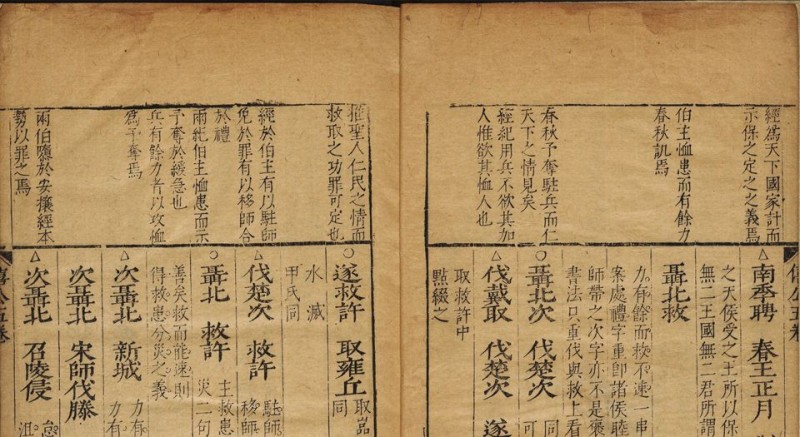 經爲天下國家計而
示保之定之之義焉
伯主恤患而有餘力
春秋譏焉
春秋予奪駐兵而仁
天下之情見矣
經紀用兵不欲其加
人惟欲其恤人也
△南季聘 春王正月
之天侯受之王所以保
無二王國無二君所謂
聶北救
力有餘而救不速一串
案處禮字重卽諸侯睦
師帶之次字亦不是褒
書法只重伐與救上看
○聶北次 伐楚次
△伐戴取 伐楚次 遂
取救許中
點綴之
僖公五卷
推聖人仁民之情而
救取之功罪可定也
經於伯主有以駐師
免於罪有以移師合
於禮
兩紀伯主恤患而示
予奪於緩急也
兵有餘力者以攻恤
爲予奪焉
兩伯隨於安攘經本
勢以罪之焉
○遂救許 取雍丘
水滅
甲氏同
△伐楚次 救許
駐師
移師
○聶北 救許
主救患
災二句
善矣救而能速則
得救患分災之義
△次聶北 新城
力有
力有
次聶北 宋師伐滕
△次聶北 召陵侵
僖公五卷